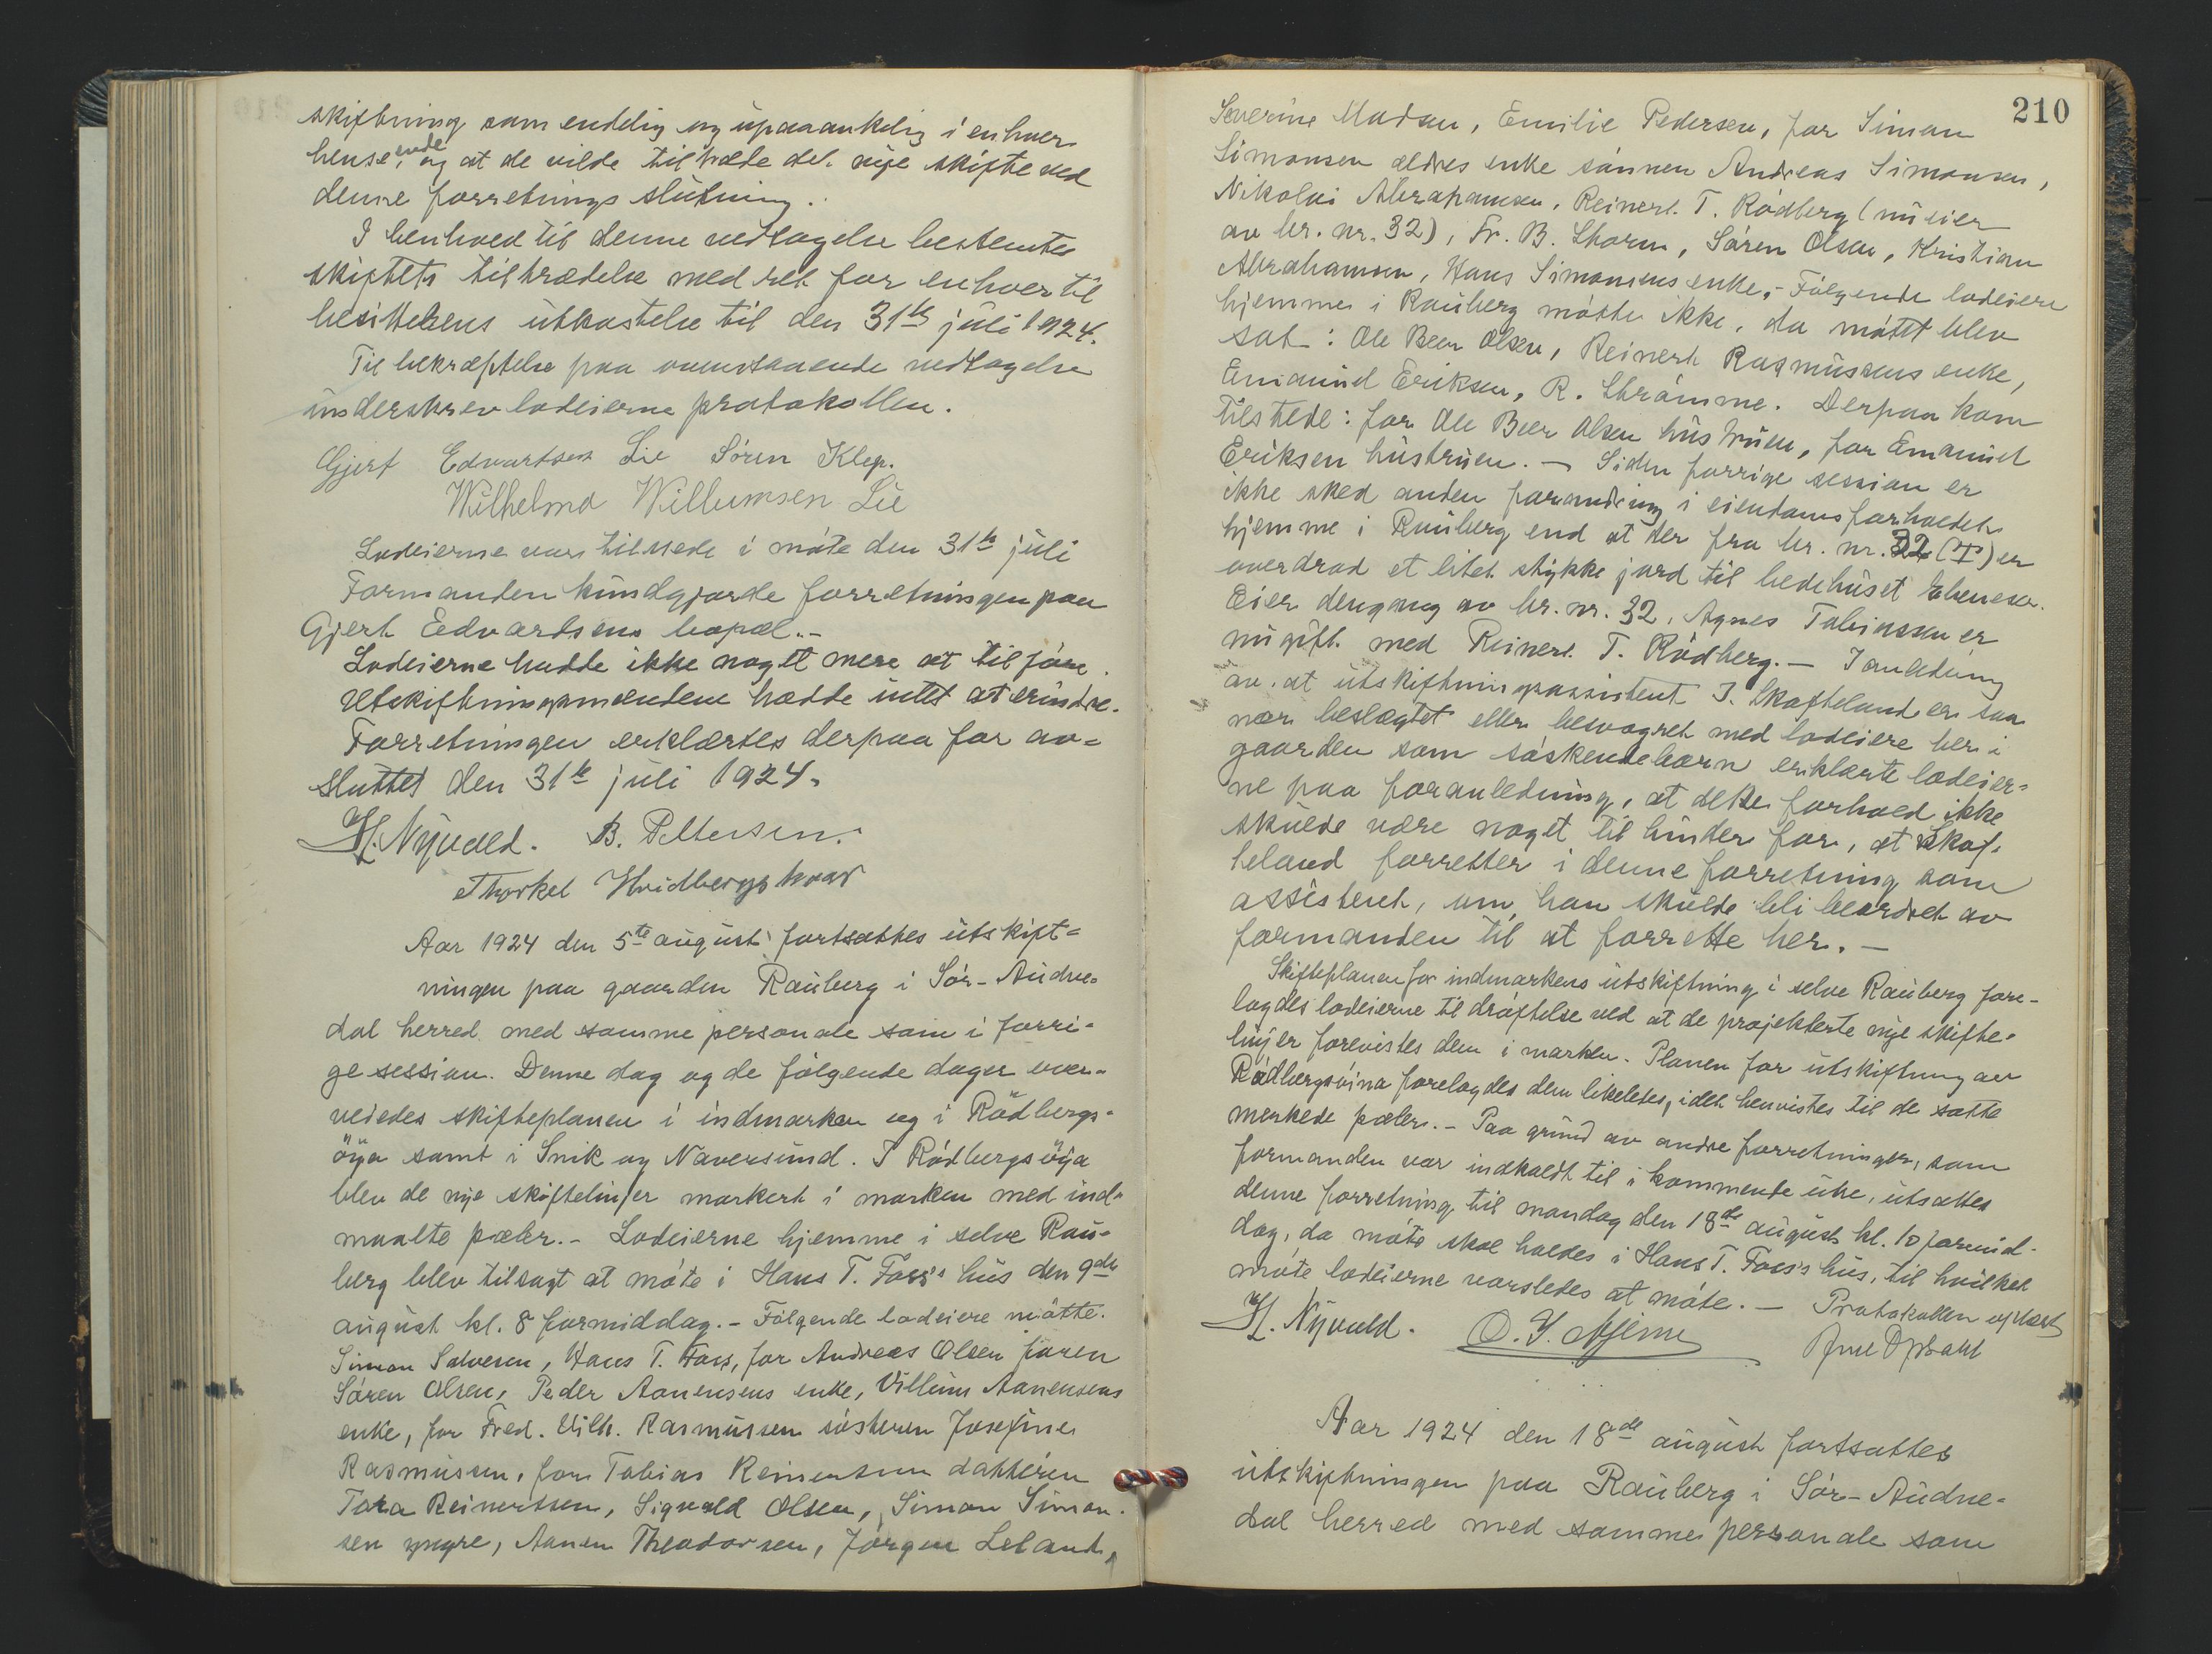 skiftning som endelig og upaaankelig i enhver
henseende, og at de vilde tiltræde det nye skifte ved
denne forretnings slutning.
I henhold til denne vedtagelse bestemtes
skiftets tiltrædelse med ret for enhver til
besittelsens utkastelse til den 31te juli 1924.
Til bekræftelse paa ovenstaaende vedtagelse
underskrev lodeierne protokollen.
Gjert Edvartsen Lie Sören Klep.
Wilhelma Willumsen Lie
Lodeierne var tilstede i möte den 31te juli
Formanden kundgjorde forretningen paa
Gjert Edvardsens bopæl.-
Lodeierne hadde ikke noget mere at tilföre.
Utskiftningsmændene hadde intet at erindre.
Forretningen erklærtes derpaa for av=
sluttet den 31te juli 1924.
H. Nyvold. B. Pettersen.
Thorkel Hvidbergskaar
Aar 1924 den 5te august fortsattes utskift=
ningen paa gaarden Rauberg i Sör-Audne=
dal herred med samme personale som i forri=
ge session. Denne dag og de fölgende dager over=
veiedes skifteplanen i indmarken og i Rödbergs=
öya samt i Snik og Naversund. I Rödbergsöya
blev de nye skiftelinjer markert i marken med ind=
maalte pæler.- Lodeierne hjemme i selve Rau=
berg blev tilsagt at möte i Hans T. Foss's hus den 9de
august kl. 8 formiddag.- Fölgende lodeiere mötte:
Simon Salvesen, Hans T. Foss, for Andreas Olsen faren
Sören Olsen, Peder Aanensens enke, Villum Aanensens
enke, for Fred. Vilh. Rasmussen sösteren Josefine
Rasmussen, for Tobias Reinertsen datteren
Tora Reinertsen, Sigvald Olsen, Simon Simon=
sen yngre, Aanen Theodorsen, Jörgen Leland,
210
Severine Madsen, Emilie Pedersen, for Simon
Simonsen ældres enke sönnen Andreas Simonsen,
Nikolai Abrahamsen, Reinert T. Rödberg (nu eier
av br. nr. 32), Fr. B. Storm, Sören Olsen, Kristian
Abrahamsen, Hans Simonsens enke,- Fölgende lodeiere
hjemme i Rauberg mötte ikke, da mötet blev
sat: Ole Beer Olsen, Reinert Rasmussens enke,
Emanuel Eriksen, R. Strömme. Derpaa kom
tilstede: for Ole Beer Olsen hustruen, for Emanuel
Eriksen hustruen. - Siden forrige session er
ikke sked anden forandring i eiendomsforholdet
hjemme i Rauberg end at der fra br. nr. 32 (T) er
overdrad et litet stykke jord til bedehuset Ebeneser.
Eier dengang av br. nr. 32, Agnes Tobiassen er
nu gift med Reinert T. Rödberg. - I anledning
av, at utskiftningsassistent J. Skofteland er saa
nær beslægtet eller besvogret med lodeiere her i
gaarden som söskendebarn erklærte lodeier=
ne paa foranledning, at dette forhold ikke
skulde være noget til hinder for, at Skof=
teland forretter i denne forretning som
assistent, om han skulde bli beordret av
formanden til at forrette her. -
Skifteplanen for indmarkens utskiftning i selve Rauberg fore-
lagdes lodeierne til dröftelse ved at de projekterte nye skifte=
linjer forevistes dem i marken. Planen for utskiftning av
Rödbergsöina forelagdes dem likeledes, idet henvistes til de satte
merkede pæler. - Paa grund av andre forretninger, som
formanden var indkaldt til i kommende uke, utsattes
denne forretning til mandag den 18de august kl. 10 formid-
dag, da möte skal holdes i Hans T. Foss's hus, til hvilket
möte lodeierne varsledes at möte. - Protokollen oplæst
H. Nyvold.
Aar 1924 den 18de august fortsattes
utskiftningen paa Rauberg i Sör-Audne=
dal herred med samme personale som